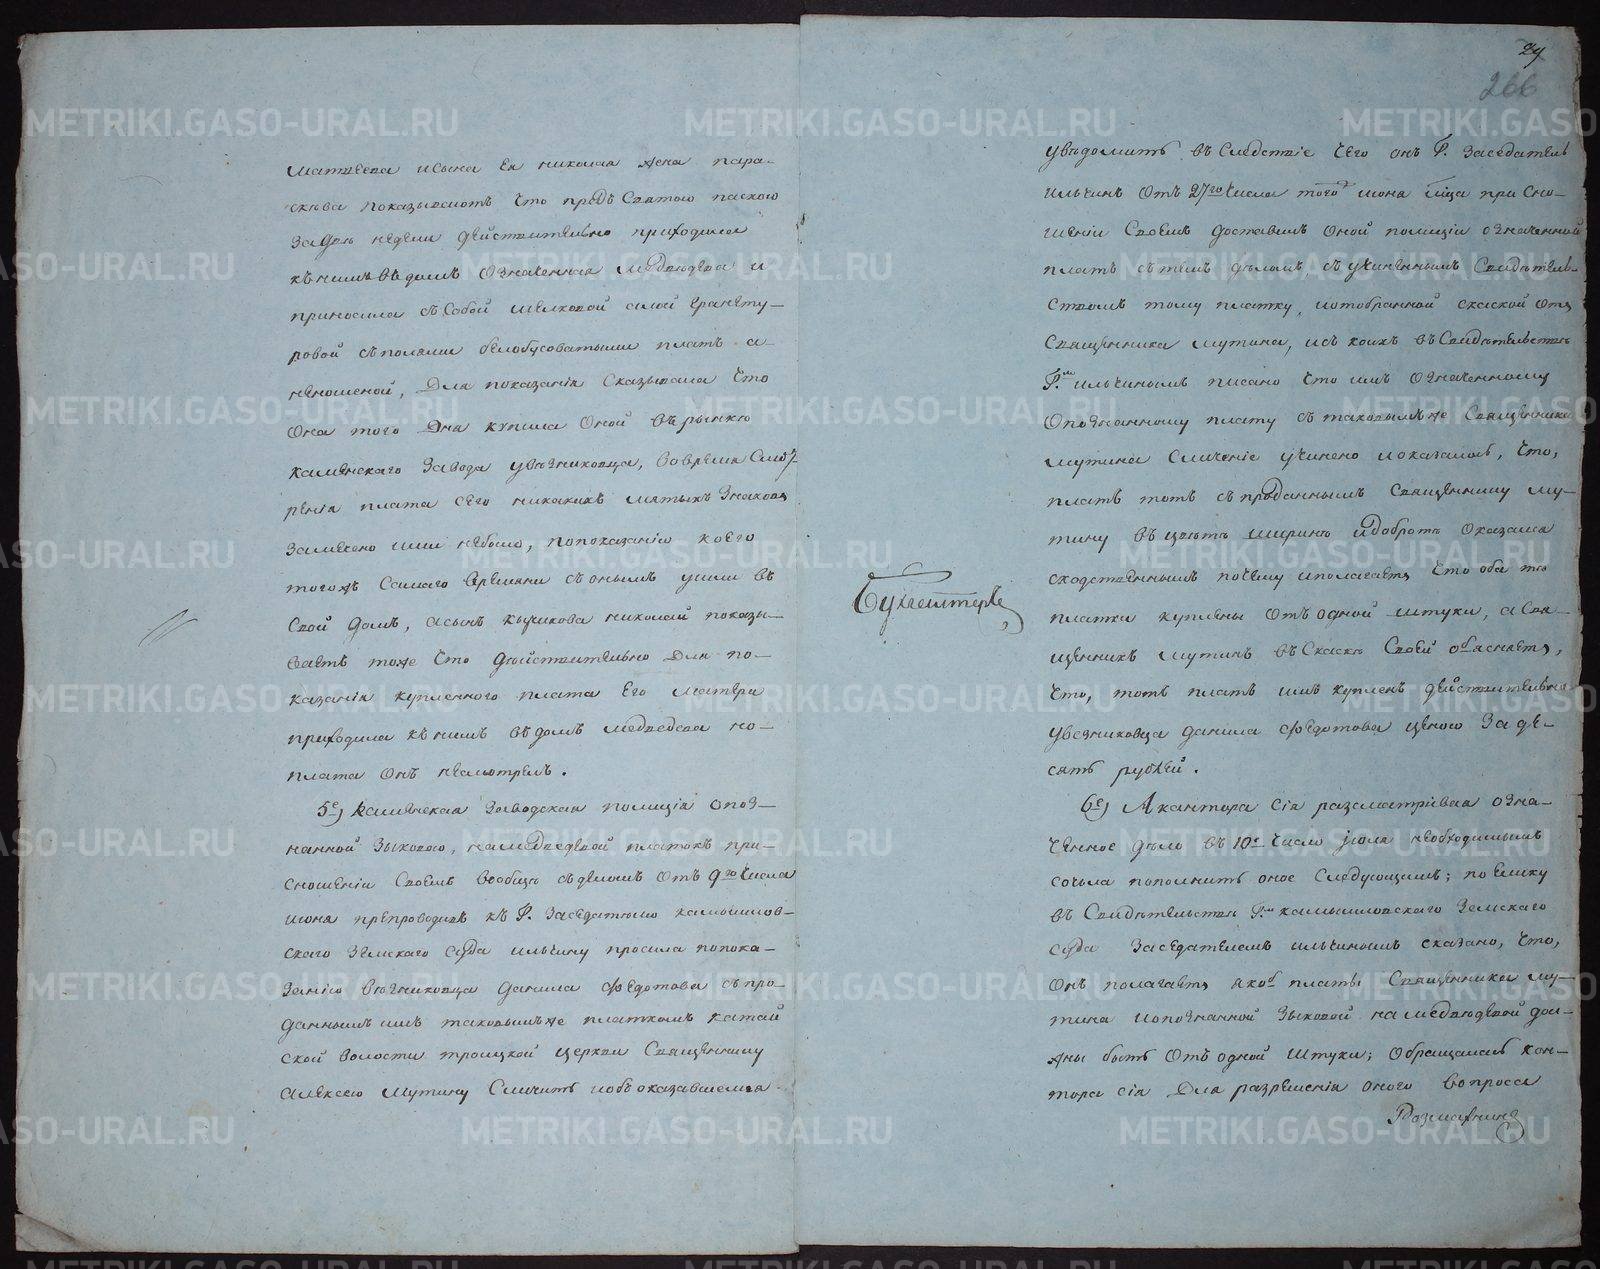 Матвеева исына Ея николая жена пара-
скева показываютъ Что предъ Святою паскою
за две недели действительно приходила
къ нимъ въ домъ означенная Медведева и
приносила съ собой шелковой алой гранету-
ровой съ полями белобусоватыми платъ а-
неношеной, для показанія сказывала Что
Она того Дня купила Оной въ рынке
Каменскаго завода увязниковца, вовремя Смот-
ренія плата Сего никакихъ мятыхъ знаковъ
замечено ими небыло, попоказаніи коего
тогожъ Самаго Времяни съонымъ ушли въ
Свой домъ, асынъ Кычикова николай показы-
ваетъ тоже Что действительно Для по-
казанія купленного плата Его матери
приходила къ нимъ въ домъ медведева но-
плата Онъ несмотрелъ.
5е) Каменская Заводская полиція опоз-
нанной Зыковою, на Медведевой платокъ при-
сношеніи Своемъ вообще съ деломъ отъ 9го Числа
июня препроводивъ къ Г. Заседателю камышлов-
скаго Земскаго Суда ильчину просила попока-
занію вязниковца данила Федотова съ про-
даннымъ имъ таковымъже платкомъ катай
ской волости троицкой церкви Священнику
Алексею Мутину Сличить иобъ оказавшемся
24
266
уведомить въ Следствіе Чего онъ Г. Заседатель
ильчинъ Отъ 27го Числа того июня м-ца при Сно-
шеніи Своемъ доставилъ Оной полиціи означенной
платъ съ темъ деломъ, съ учиненнымъ Свидетель-
ствомъ тому платку, иотобранной сказкой Отъ
Священника мутина, исъ коихъ въ Свидетельстве
Г.мъ ильчинымъ писано Что имъ означенному
Опознанному плату съ таковымъже Священника
мутина Сличеніе учинено иоказалось, Что,
платъ тотъ съ проданнымъ Священнику му-
тину въ цвете ширине и доброте Оказался
сходственнымъ почему иполагаетъ Что оба те
платка куплены Отъ одной штуки, а Свя-
щенникъ мутинъ въ Сказке Своей объясняетъ,
Что, тотъ платъ имъ купленъ действительно
увезниковца данила Федотова ценою За де-
сять рублей.
6е) А кантора сія разсматривая озна-
Ченное дело въ 10е Число июля необходимымъ
сочла пополнить оное Следующимъ; поелику
въ Свидетельстве Г.мъ камышловскаго Земскаго
суда Заседателемъ ильчинымъ сказано, Что,
Онъ полагаетъ якоб платы Священника му-
тина иопознанной Зыковой на медведевой дол-
жны быть Отъ одной штуки; обращалась кон-
тора сія Для разрешенія оного вопроса
Бухгалтеръ